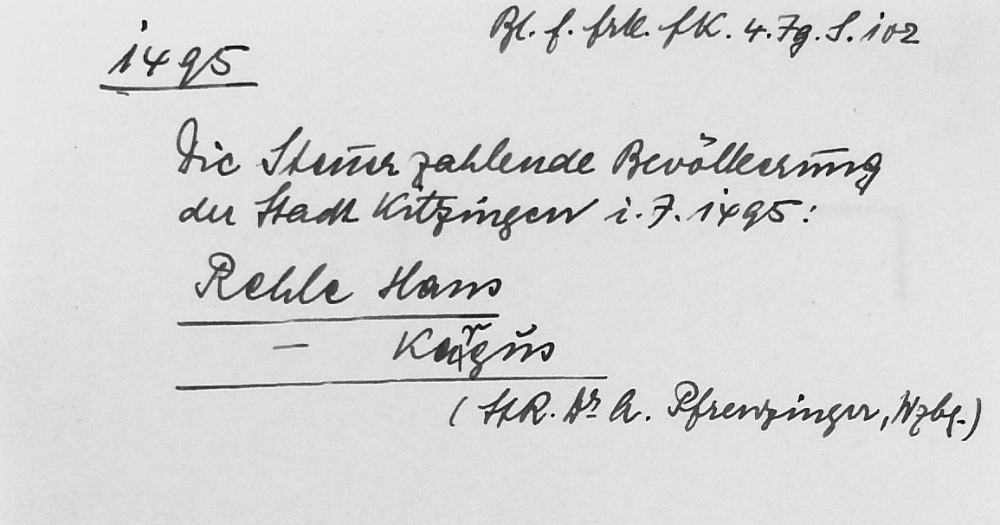 Bl. f. frk. fK. 4. Jg. S. 102
1495
Die Steuer zahlende Bevölkerung
der Stadt Kitzingen i. J. 1495:
Rehle Hans
—
(StR. Dr A. Pfrenzinger, Wzbg.)